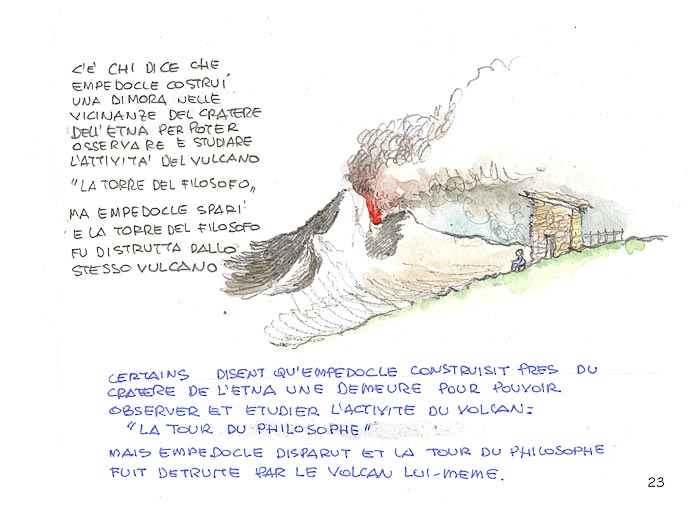 C'E' CHI DICE CHE
EMPEDOCLE COSTRUI'
UNA DIMORA NELLE
VICINANZE DEL CRATERE
DELL'ETNA PER POTER
OSSERVARE E STUDIARE
L'ATTIVITA' DEL VULCANO
"LA TORRE DEL FILOSOFO"
MA EMPEDOCLE SPARI'
E LA TORRE DEL FILOSOFO
FU DISTRUTTA DALLO
STESSO VULCANO
CERTAINS DISENT QU'EMPEDOCLE CONSTRUISIT PRES DU
CRATERE DE L'ETNA UNE DEMEURE POUR POUVOIR
OBSERVER ET ETUDIER L'ACTIVITE DU VOLCAN:
"LA TOUR DU PHILOSOPHE"
MAIS EMPEDOCLE DISPARUT ET LA TOUR DU PHILOSOPHE
FUIT DETRUITE PAR LE VOLCAN LUI-MEME.
23